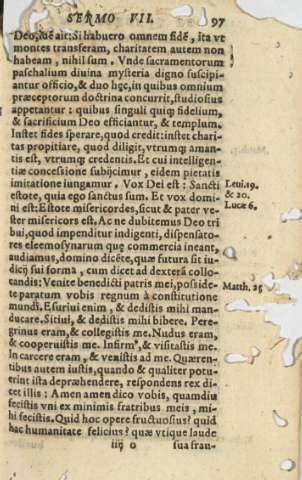 SERMO VII. 97
Deo, ait: Si habuero omnem fidē, ita vt
montes transferam, charitatem autem non
habeam, nihil sum. Vnde sacramentorum
paschalium diuina mysteria digno suscipi-
antur officio, & duo hęc, in quibus omnium
præceptorum doctrina concurrit, studiosius
appetantur: quibus singuli quiq́; fidelium,
& sacrificium Deo efficiantur, & templum.
Instet fides sperare, quod credit: instet chari-
tas propitiare, quod diligit, vtrumq; aman-
tis est, vtrumq; credentis. Et cui intelligen-
tiæ concessione subijcimur, eidem pietatis
imitatione iungamur. Vox Dei est: Sancti
estote, quia ego sanctus sum. Et vox domi-
ni est: Estote misericordes, sicut & pater ve-
ster misericors est. Ac ne dubitemus Deo tri
bui, quod impenditur indigenti, dispensato-
res eleemosynarum quę commercia ineant,
audiamus, domino dicēte, quæ futura sit iu-
dicij sui forma, cum dicet ad dexterā collo-
candis: Venite benedicti patris mei, posside-
te paratum vobis regnum à constitutione
mundi. Esuriui enim, & dedistis mihi man-
ducare. Sitiui, & dedistis mihi bibere. Pere-
grinus eram, & collegistis me. Nudus eram,
& cooperuistis me. Infirmꝰ, & visitastis me.
In carcere eram, & venistis ad me. Quæren-
tibus autem iustis, quando & qualiter potu-
erint ista depræhendere, respondens rex di-
cet illis: Amen amen dico vobis, quamdiu
fecistis vni ex minimis fratribus meis, mi-
hi fecistis. Quid hoc opere fructuosius? quid
hac humanitate felicius? quæ vtique laude
iiij o sua fran-
Leui. 19.
& 20.
Lucæ 6.
Matth. 25